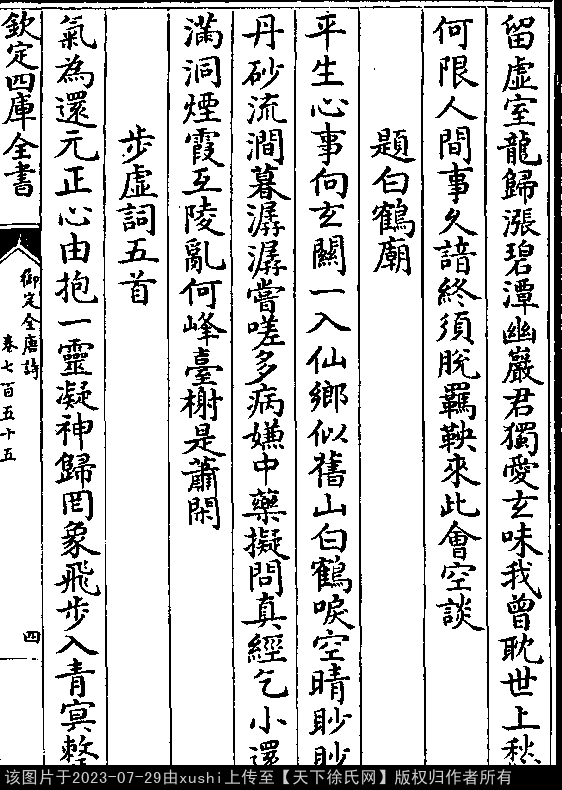 留虛室龍歸漲碧潭幽巖君獨愛玄味我曾耽世上愁
何限人間事久諳終須脫羈鞅來此會空談
題白鶴廟
平生心事向玄關一入仙鄉似舊山白鶴唳空晴眇眇
丹砂流澗暮潺潺嘗嗟多病嫌中藥擬問真經乞小還
滿洞煙霞互陵亂何峰臺榭是蕭閑
步虛詞五首
氣為還元正心由抱一靈凝神歸罔象飛步入青冥整
欽定四庫全書
御定全唐詩
卷七百五十五
四
该图片于2023-07-29由xushi上传至【天下徐氏网】版权归作者所有